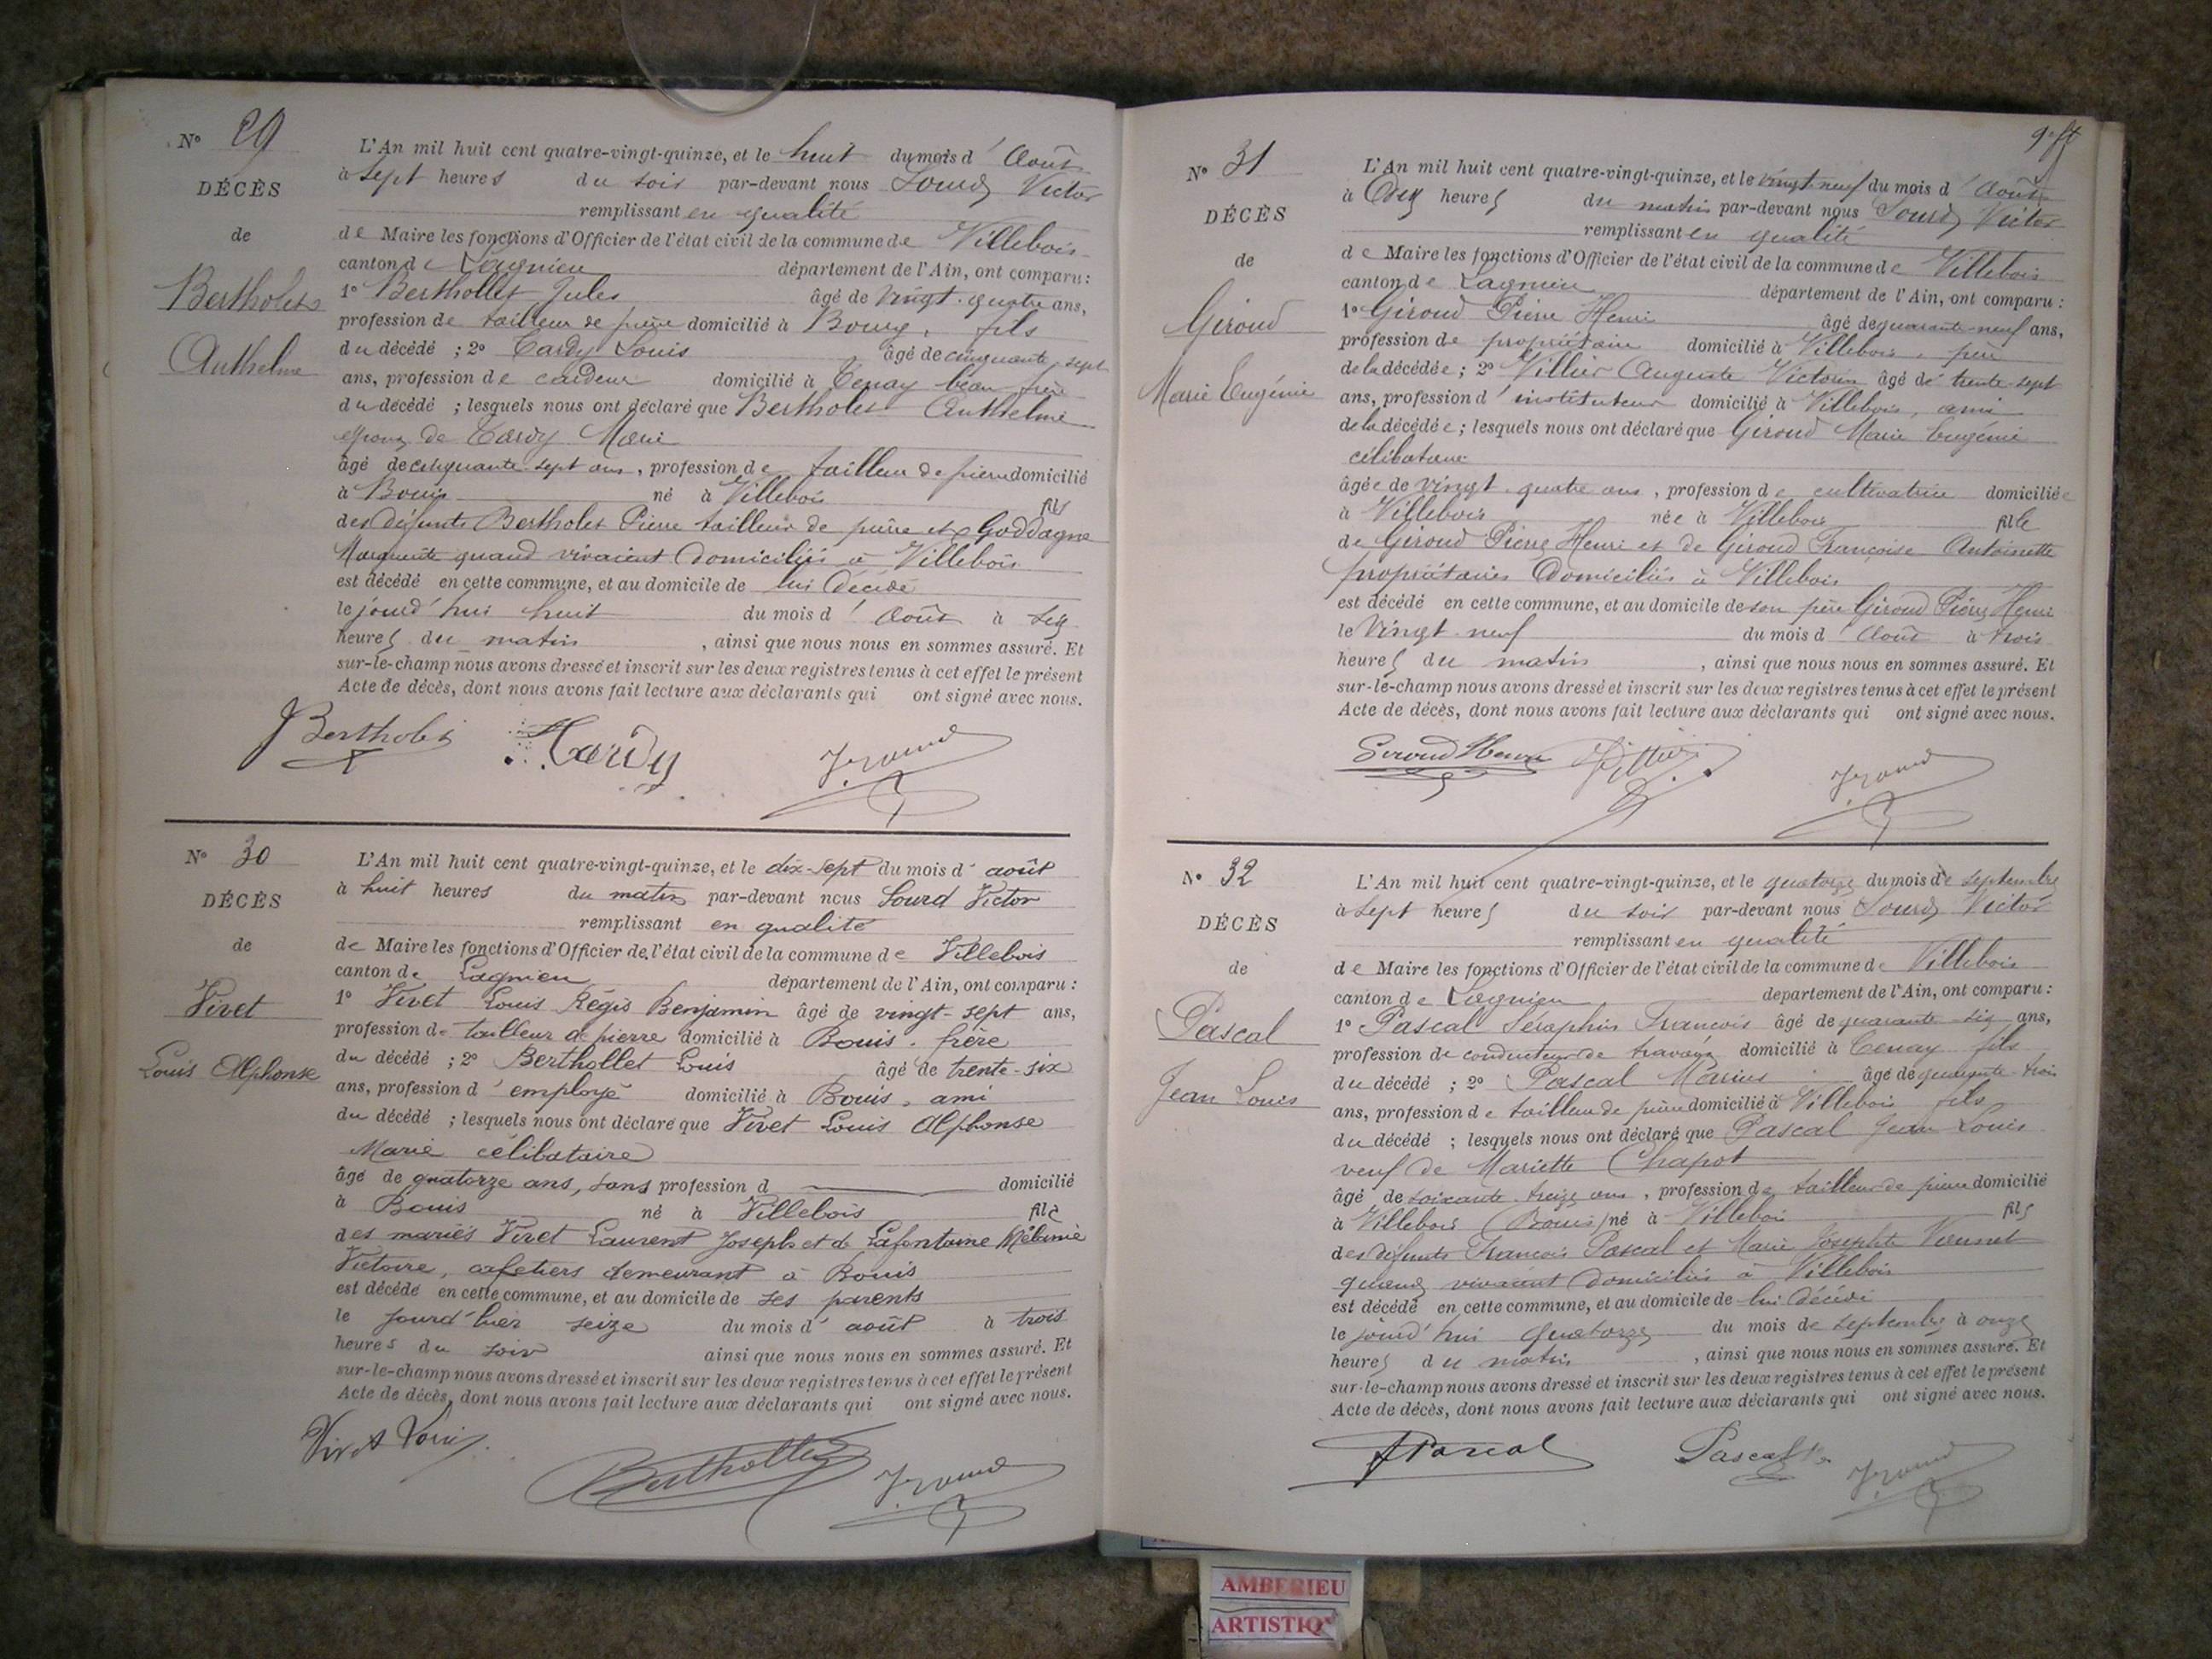 N° 29
DÉCÈS
de
Bertholet
Anthelme
L'An mil huit cent quatre-vingt-quinze, et le huit du mois d'Août
à sept heures du soir par-devant nous Sourd Victor
remplissant en qualité
de Maire les fonctions d'Officier de l'état civil de la commune de Villebois
canton de Lagnieu département de l'Ain, ont comparu :
1° Berthollet Jules âgé de vingt-quatre ans,
profession de tailleur de pierre domicilié à Bouis, fils
du décédé ; 2° Tardy Louis âgé de cinquante sept
ans, profession de cardeur domicilié à Tenay beau frère
du décédé ; lesquels nous ont déclaré que Bertholet Anthelme
époux de Tardy Marie
âgé de cinquante-sept ans, profession de tailleur de pierre domicilié
à Bouis né à Villebois fils
des défunts Bertholet Pierre tailleur de pierre et Goddagne
Marguerite quand vivaient domiciliés à Villebois
est décédé en cette commune, et au domicile de lui décédé
le jourd'hui huit du mois d'Août à six
heures du matin, ainsi que nous nous en sommes assuré. Et
sur-le-champ nous avons dressé et inscrit sur les deux registres tenus à cet effet le présent
Acte de décès, dont nous avons fait lecture aux déclarants qui ont signé avec nous.
Bertholet Tardy
N° 30
DÉCÈS
de
Vivet
Louis Alphonse
L'An mil huit cent quatre-vingt-quinze, et le dix-sept du mois d'août
à huit heures du matin par-devant nous Sourd Victor
remplissant en qualité
de Maire les fonctions d'Officier de l'état civil de la commune de Villebois
canton de Lagnieu département de l'Ain, ont comparu :
1° Vivet Louis Régis Benjamin âgé de vingt-sept ans,
profession de tailleur de pierre domicilié à Bouis, frère
du décédé ; 2° Berthollet Louis âgé de trente-six
ans, profession d'employé domicilié à Bouis, ami
du décédé ; lesquels nous ont déclaré que Vivet Louis Alphonse
Marie célibataire
âgé de quatorze ans, sans profession d domicilié
à Bouis né à Villebois fils
des mariés Vivet Laurent Joseph et de Lafontaine Mélanie
Victoire, cafetiers demeurant à Bouis
est décédé en cette commune, et au domicile de ses parents
le jourd'hier seize du mois d'août à trois
heures du soir ainsi que nous nous en sommes assuré. Et
sur-le-champ nous avons dressé et inscrit sur les deux registres tenus à cet effet le présent
Acte de décès, dont nous avons fait lecture aux déclarants qui ont signé avec nous.
Vivet Louis Berthollet
N° 31
DÉCÈS
de
Giroud
Marie Eugénie
L'An mil huit cent quatre-vingt-quinze, et le vingt-neuf du mois d'Août
à onze heures du matin par-devant nous Sourd Victor
remplissant en qualité
de Maire les fonctions d'Officier de l'état civil de la commune de Villebois
canton de Lagnieu département de l'Ain, ont comparu :
1° Giroud Pierre Henri âgé de quarante-neuf ans,
profession de propriétaire domicilié à Villebois, père
de la décédée ; 2° Villier Auguste Victorin âgé de trente-sept
ans, profession d'instituteur domicilié à Villebois, ami
de la décédée ; lesquels nous ont déclaré que Giroud Marie Eugénie
célibataire
âgée de vingt-quatre ans, profession de cultivatrice domiciliée
à Villebois née à Villebois fille
de Giroud Pierre Henri et de Giroud Françoise Antoinette
propriétaires domiciliés à Villebois
est décédé en cette commune, et au domicile de son père Giroud Pierre Henri
le vingt-neuf du mois d'Août à trois
heures du matin, ainsi que nous nous en sommes assuré. Et
sur-le-champ nous avons dressé et inscrit sur les deux registres tenus à cet effet le présent
Acte de décès, dont nous avons fait lecture aux déclarants qui ont signé avec nous.
Giroud Henri
N° 32
DÉCÈS
de
Pascal
Jean Louis
L'An mil huit cent quatre-vingt-quinze, et le quatorze du mois de septembre
à sept heures du soir par-devant nous Sourd Victor
remplissant en qualité
de Maire les fonctions d'Officier de l'état civil de la commune de Villebois
canton de Lagnieu département de l'Ain, ont comparu :
1° Pascal Séraphin François âgé de quarante-six ans,
profession de conducteur de travaux domicilié à Tenay fils
du décédé ; 2° Pascal Marius âgé de quarante-trois
ans, profession de tailleur de pierre domicilié à Villebois fils
du décédé ; lesquels nous ont déclaré que Pascal Jean Louis
veuf de Mariette Chapot
âgé de soixante-treize ans, profession de tailleur de pierre domicilié
à Villebois (Bouis) né à Villebois fils
des défunts François Pascal et Marie Josephte
quand vivaient domiciliés à Villebois
est décédé en cette commune, et au domicile de lui décédé
le jourd'hui quatorze du mois de septembre à onze
heures du matin, ainsi que nous nous en sommes assuré. Et
sur-le-champ nous avons dressé et inscrit sur les deux registres tenus à cet effet le présent
Acte de décès, dont nous avons fait lecture aux déclarants qui ont signé avec nous.
Pascal Pascal
AMBERIEU
ARTISTIQ